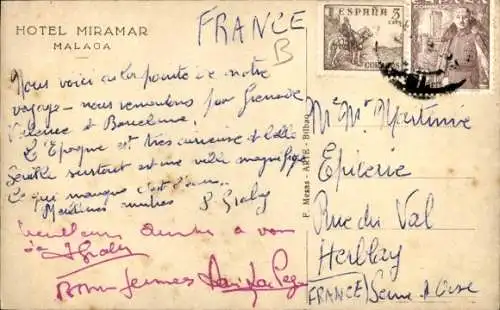 HOTEL MIRAMAR
MALAGA
FRANCE
B
ESPAÑA 5
CTS
CORREOS
ESPAÑA
Nous voici au pointe de notre
voyage - nous remontons par Grenade
Valence et Barcelone.
L'Epoque est très curieuse et belle
Seville surtout est une ville magnifique
Ce qui manque c'est d'eau.
Meilleures amitiés P. Graly
Meilleurs amitiés à vous
Graly
Bonnes
F. Mesas - ARTE - Bilbao
Me Mr Martinie
Epicerie
Rue du Val
Herblay
(FRANCE) Seine & Oise